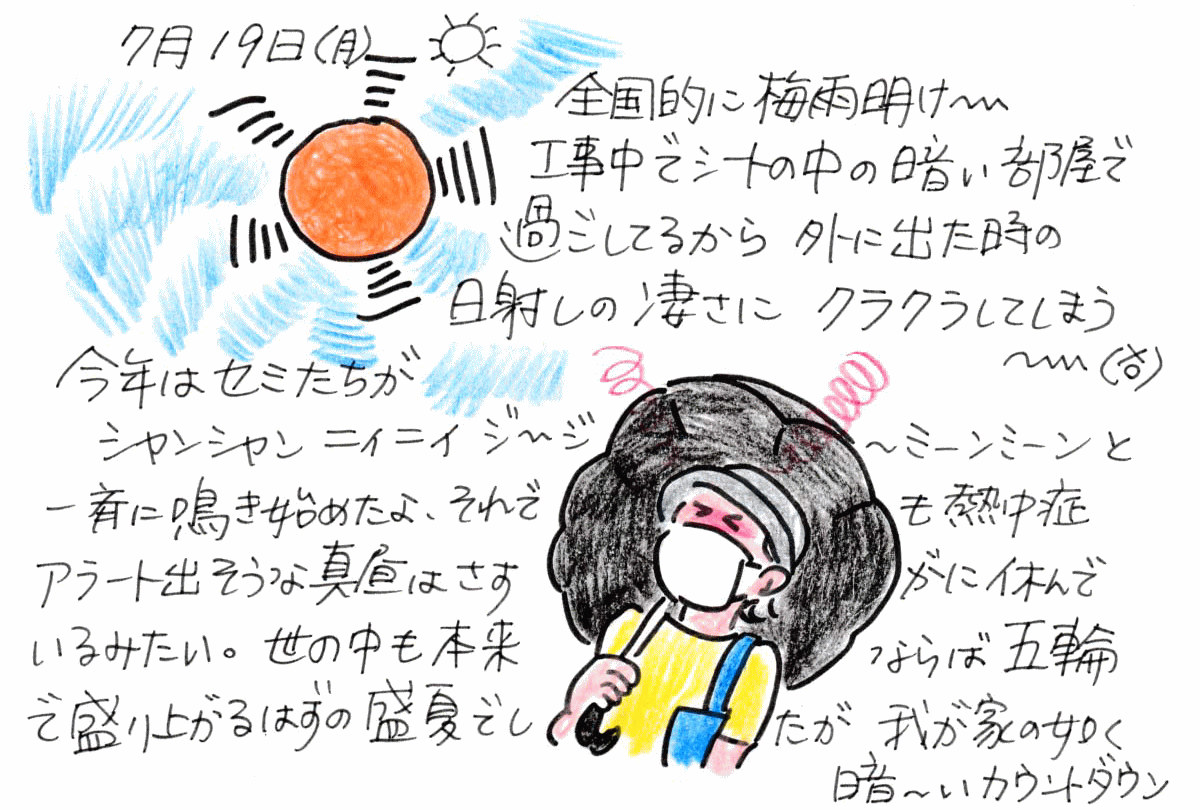 7月19日(月)
全国的に梅雨明け〜
工事中でシートの中の暗い部屋で
過ごしてるから 外に出た時の
日射しの凄さに クラクラしてしまう
〜(笑)
今年はセミたちが
シャンシャン ニイニイ ジ〜ジ〜ミーンミーンと
一斉に鳴き始めたよ、それでも熱中症
アラート出そうな真昼はさすがに休んで
いるみたい。世の中も本来ならば五輪
で盛り上がるはずの盛夏でしたが 我が家の如く
暗〜いカウントダウン